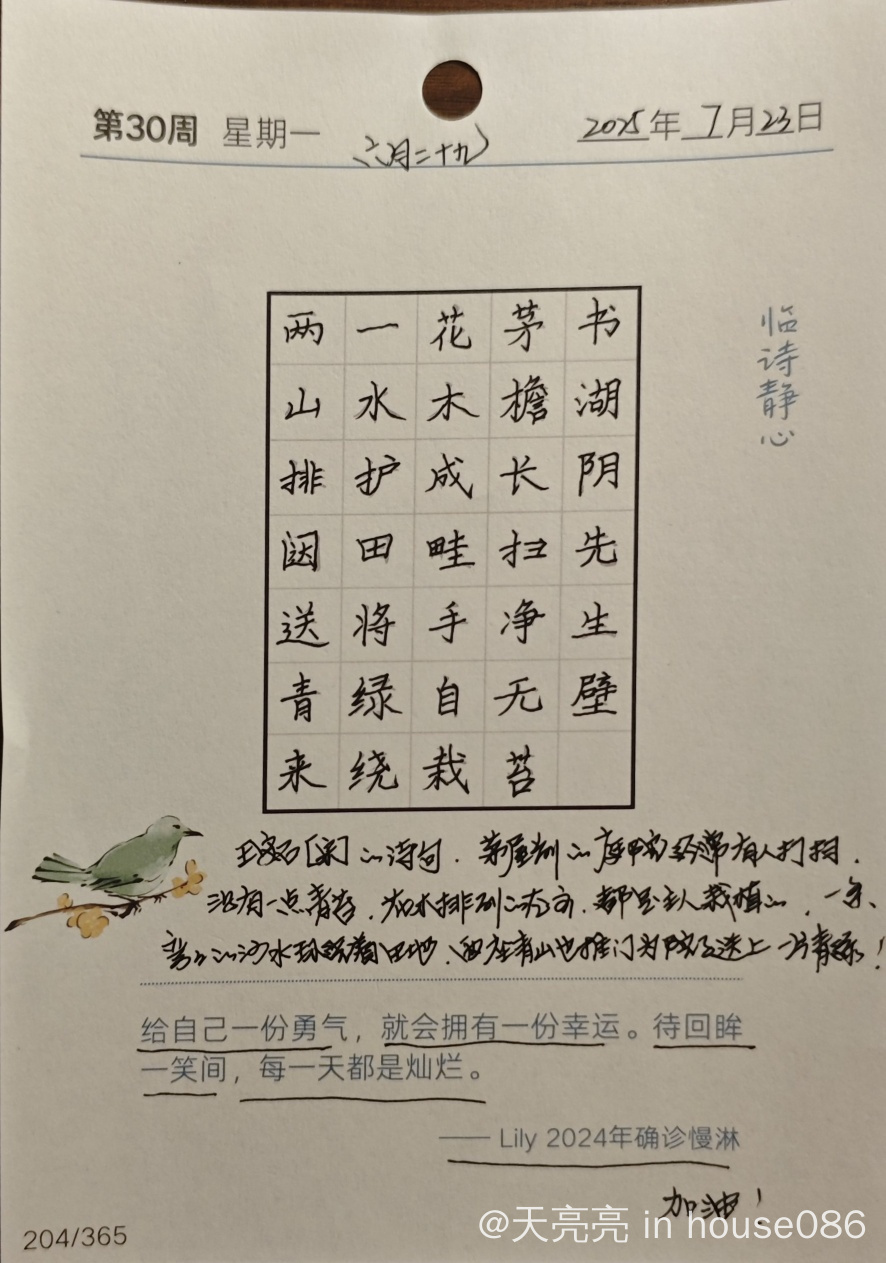 第30周 星期一
2025年7月23日
六月二十九
临诗静心
书湖阴先生壁
茅檐长扫净无苔
花木成畦手自栽
一水护田将绿绕
两山排闼送青来
王安石[宋]的诗句.茅屋前的庭院经常有人打扫.
没有一点青苔.花木排列都是主人栽植的.一条、
弯弯的河水环绕着田地、两座青山也推门为院子送上一片青绿!
给自己一份勇气，就会拥有一份幸运。待回眸
一笑间，每一天都是灿烂。
—— Lily 2024年确诊慢淋
加油！
204/365
@天亮亮 in house086